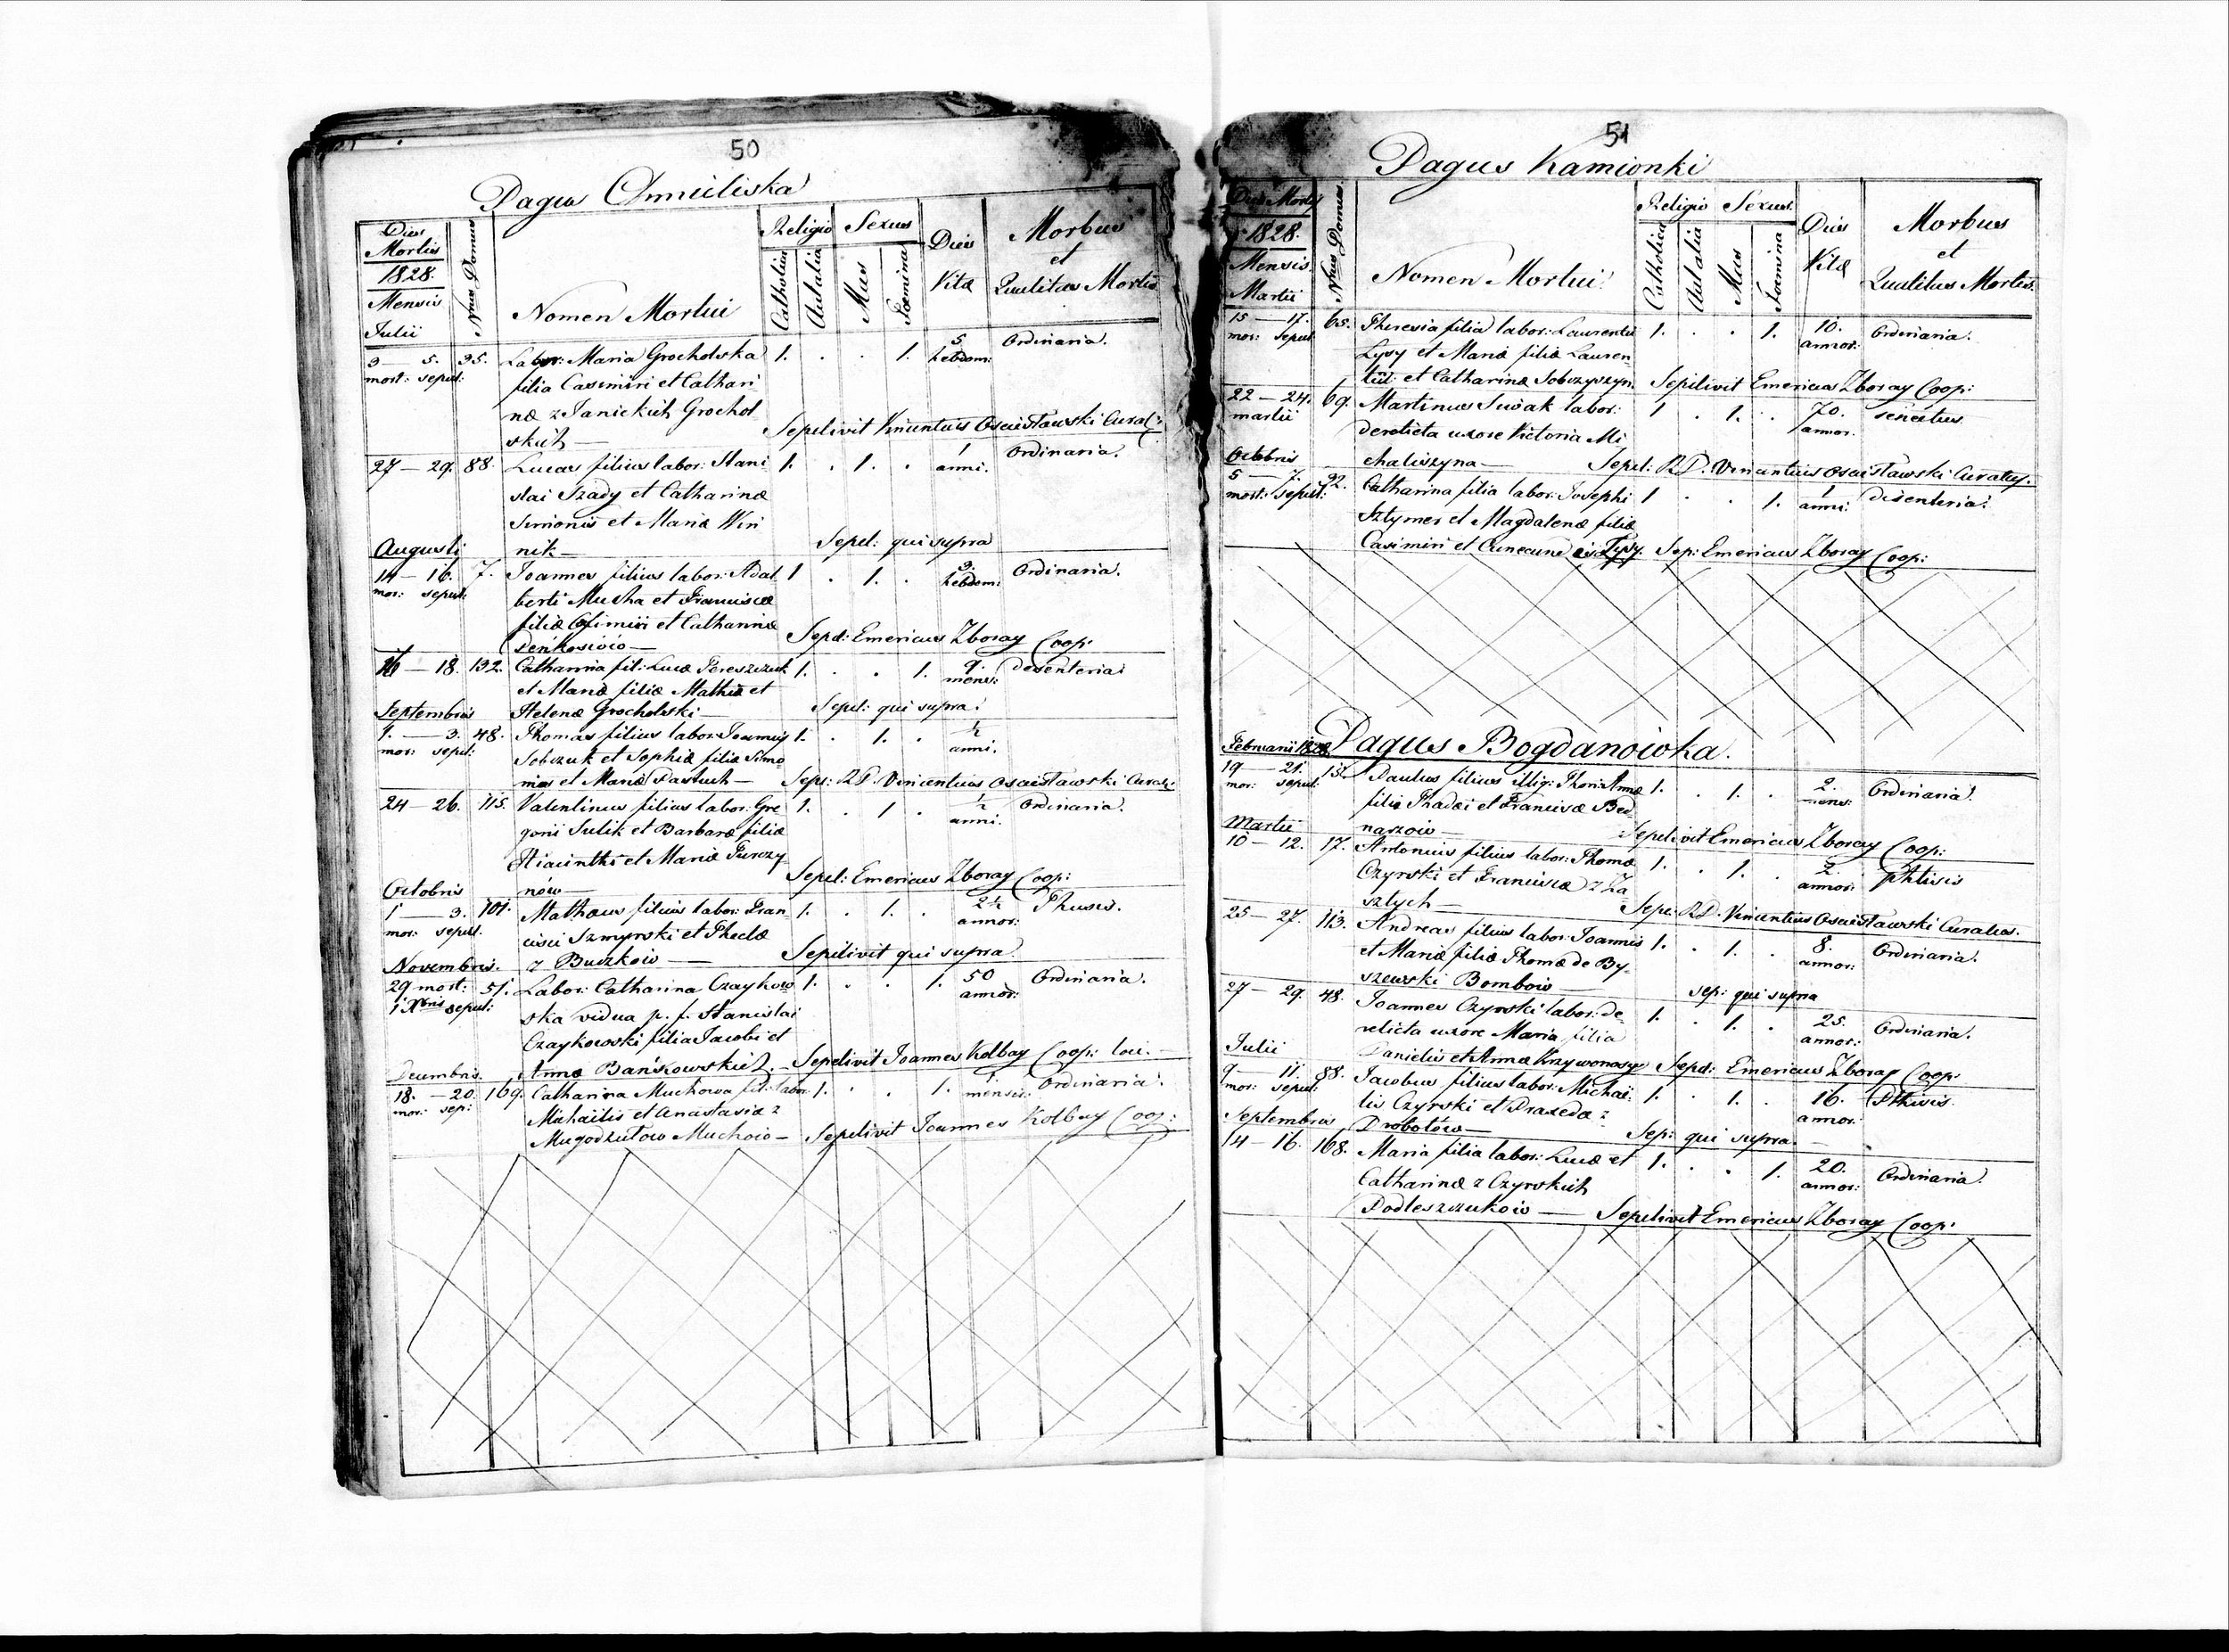 50
Pagus Chmieliska
Dies Mortis
1828.
Mensis Julii
Nrus Domus
Nomen Mortui
Religio
Catholica
Aut alia
Sexus
Mas
Foemina
Dies Vitæ
Morbus et Qualitas Mortis
3 — 5. 35. Labor: Maria Grocholska 1. . . 1. 5 hebdom: Ordinaria.
mort: sepul:
filia Casimiri et Cathari
næ z Janickich Grochol
skich — Sepelivit Vincentius Osai Curat:
27 — 29. 88. Lucas filius labor: Stani 1. . 1. . 1 anni. Ordinaria.
slai Szady et Catharinæ
Simonis et Mariæ Win
nik — Sepel: qui supra
Augusti
14 — 16. 7. Joannes filius labor: Adal 1 . 1. . 3. hebdom: Ordinaria.
mor: sepul:
berti Mucha et Franciscæ
filiæ et Catharinæ
Sepel: Emericus Zboray Coop:
16 — 18. 132. Catharina fil: Lucæ 1. . . 1. 9. mens: desenteria
et Mariæ filiæ Mathiæ et
Helenæ Grocholski — Sepel: qui supra.
Septembris
1. — 3. 48. Thomas filius labor: Joannis 1. . 1. . ½ anni.
mor: sepul:
Sobczuk et Sophiæ filiæ Simo
nis et Mariæ Pastuch — Sepe: R.D. Vincentius Curat:
24 — 26. 115. Valentinus filius labor: Gre 1. . 1 . ½ anni. Ordinaria.
gorii Sulik et Barbaræ filiæ
Hiacinthi et Mariæ Turczy
nów — Sepel: Emericus Zboray Coop:
Octobris
1 — 3. 101. Mathæus filius labor: Fran 1. . 1. . 2½ annor:
mor: sepul.
cisci Szmyrski et Theclæ
z Buczków — Sepelivit qui supra
Novembris.
29 mort: 51. Labor: Catharina Czaykow 1. . . 1. 50 annor: Ordinaria.
1 Xbris sepul:
ska vidua p. f. Stanislai
Czaykowski filia Jacobi et
Annæ Bańkowskich. — Sepelivit Joannes Kolbay Coop: loci. —
Decembris.
18. — 20. 169. Catharina Muchowa fil: labor: 1. . . 1. 1 mensis. Ordinaria.
mor: sep:
Michailis et Anastasiæ z
Muchów — Sepelivit Joannes Kolbay Coop:
51
Pagus Kamionki
Dies Mortis
1828.
Mensis Martii
Nrus Domus
Nomen Mortui
Religio
Catholica
Aut alia
Sexus
Mas
Foemina
Dies Vitæ
Morbus et Qualitas Mortis.
15 — 17. 65. Theresia filia labor: Laurentii 1. . . 1. 10. annor: Ordinaria.
mor: sepul
Lysy et Mariæ filiæ Lauren
tii et Catharinæ Sobczyszyn. Sepilivit Emericus Zboray Coop:
22 — 24. 69. Martinus Siwak labor: 1 . 1. . 70. annor. senectus
martii
derelicta uxore Victoria Mi
chaliszyna — Sepel: R.D. Vincentius Curatus.
Octobris
5 — 7. 32. Catharina filia labor: Josephi 1 . . 1. 1 anni: disenteria.
mort: sepul:
Sztymer et Magdalenæ filiæ
Casimiri et Lysy. Sep: Emericus Zboray Coop:
Februarii 1828
Pagus Bogdanówka.
19 — 21. Paulus filius illig: Annæ 1. . 1. . 2. mens: Ordinaria.
mor: sepul:
filiæ Thadæi et Franciscæ Bed
narzów — Sepelivit Emericus Zboray Coop:
Martii
10 — 12. 17. Antonius filius labor: Thomæ 1. . 1. . 2. annor: phtisis
Czyrski et Franciscæ z Za
sztych — Sepe: R.D. Vincentius Curatus.
25 — 27. 113. Andreas filius labor: Joannis 1. . 1. . 8. annor: Ordinaria.
et Mariæ filiæ Thomæ de By
szewski Bombów — sep: qui supra
27 — 29. 48. Joannes Czyrski labor: de 1. . 1. . 25. annor: Ordinaria.
relicta uxore Maria filia
Danielis et Annæ Krzywonosy Sepel: Emericus Zboray Coop:
Julii
9 — 11. 88. Jacobus filius labor: Michai 1. . 1. . 16. annor: Pthisis.
mor: sepul:
lis Czyrski et Praxeda z
Drobotów — Sep: qui supra. —
Septembris
14 — 16. 168. Maria filia labor: Lucæ et 1. . . 1. 20. annor: Ordinaria.
Catharinæ z Czyrskich
Podleszczuków — Sepelivit Emericus Zboray Coop: